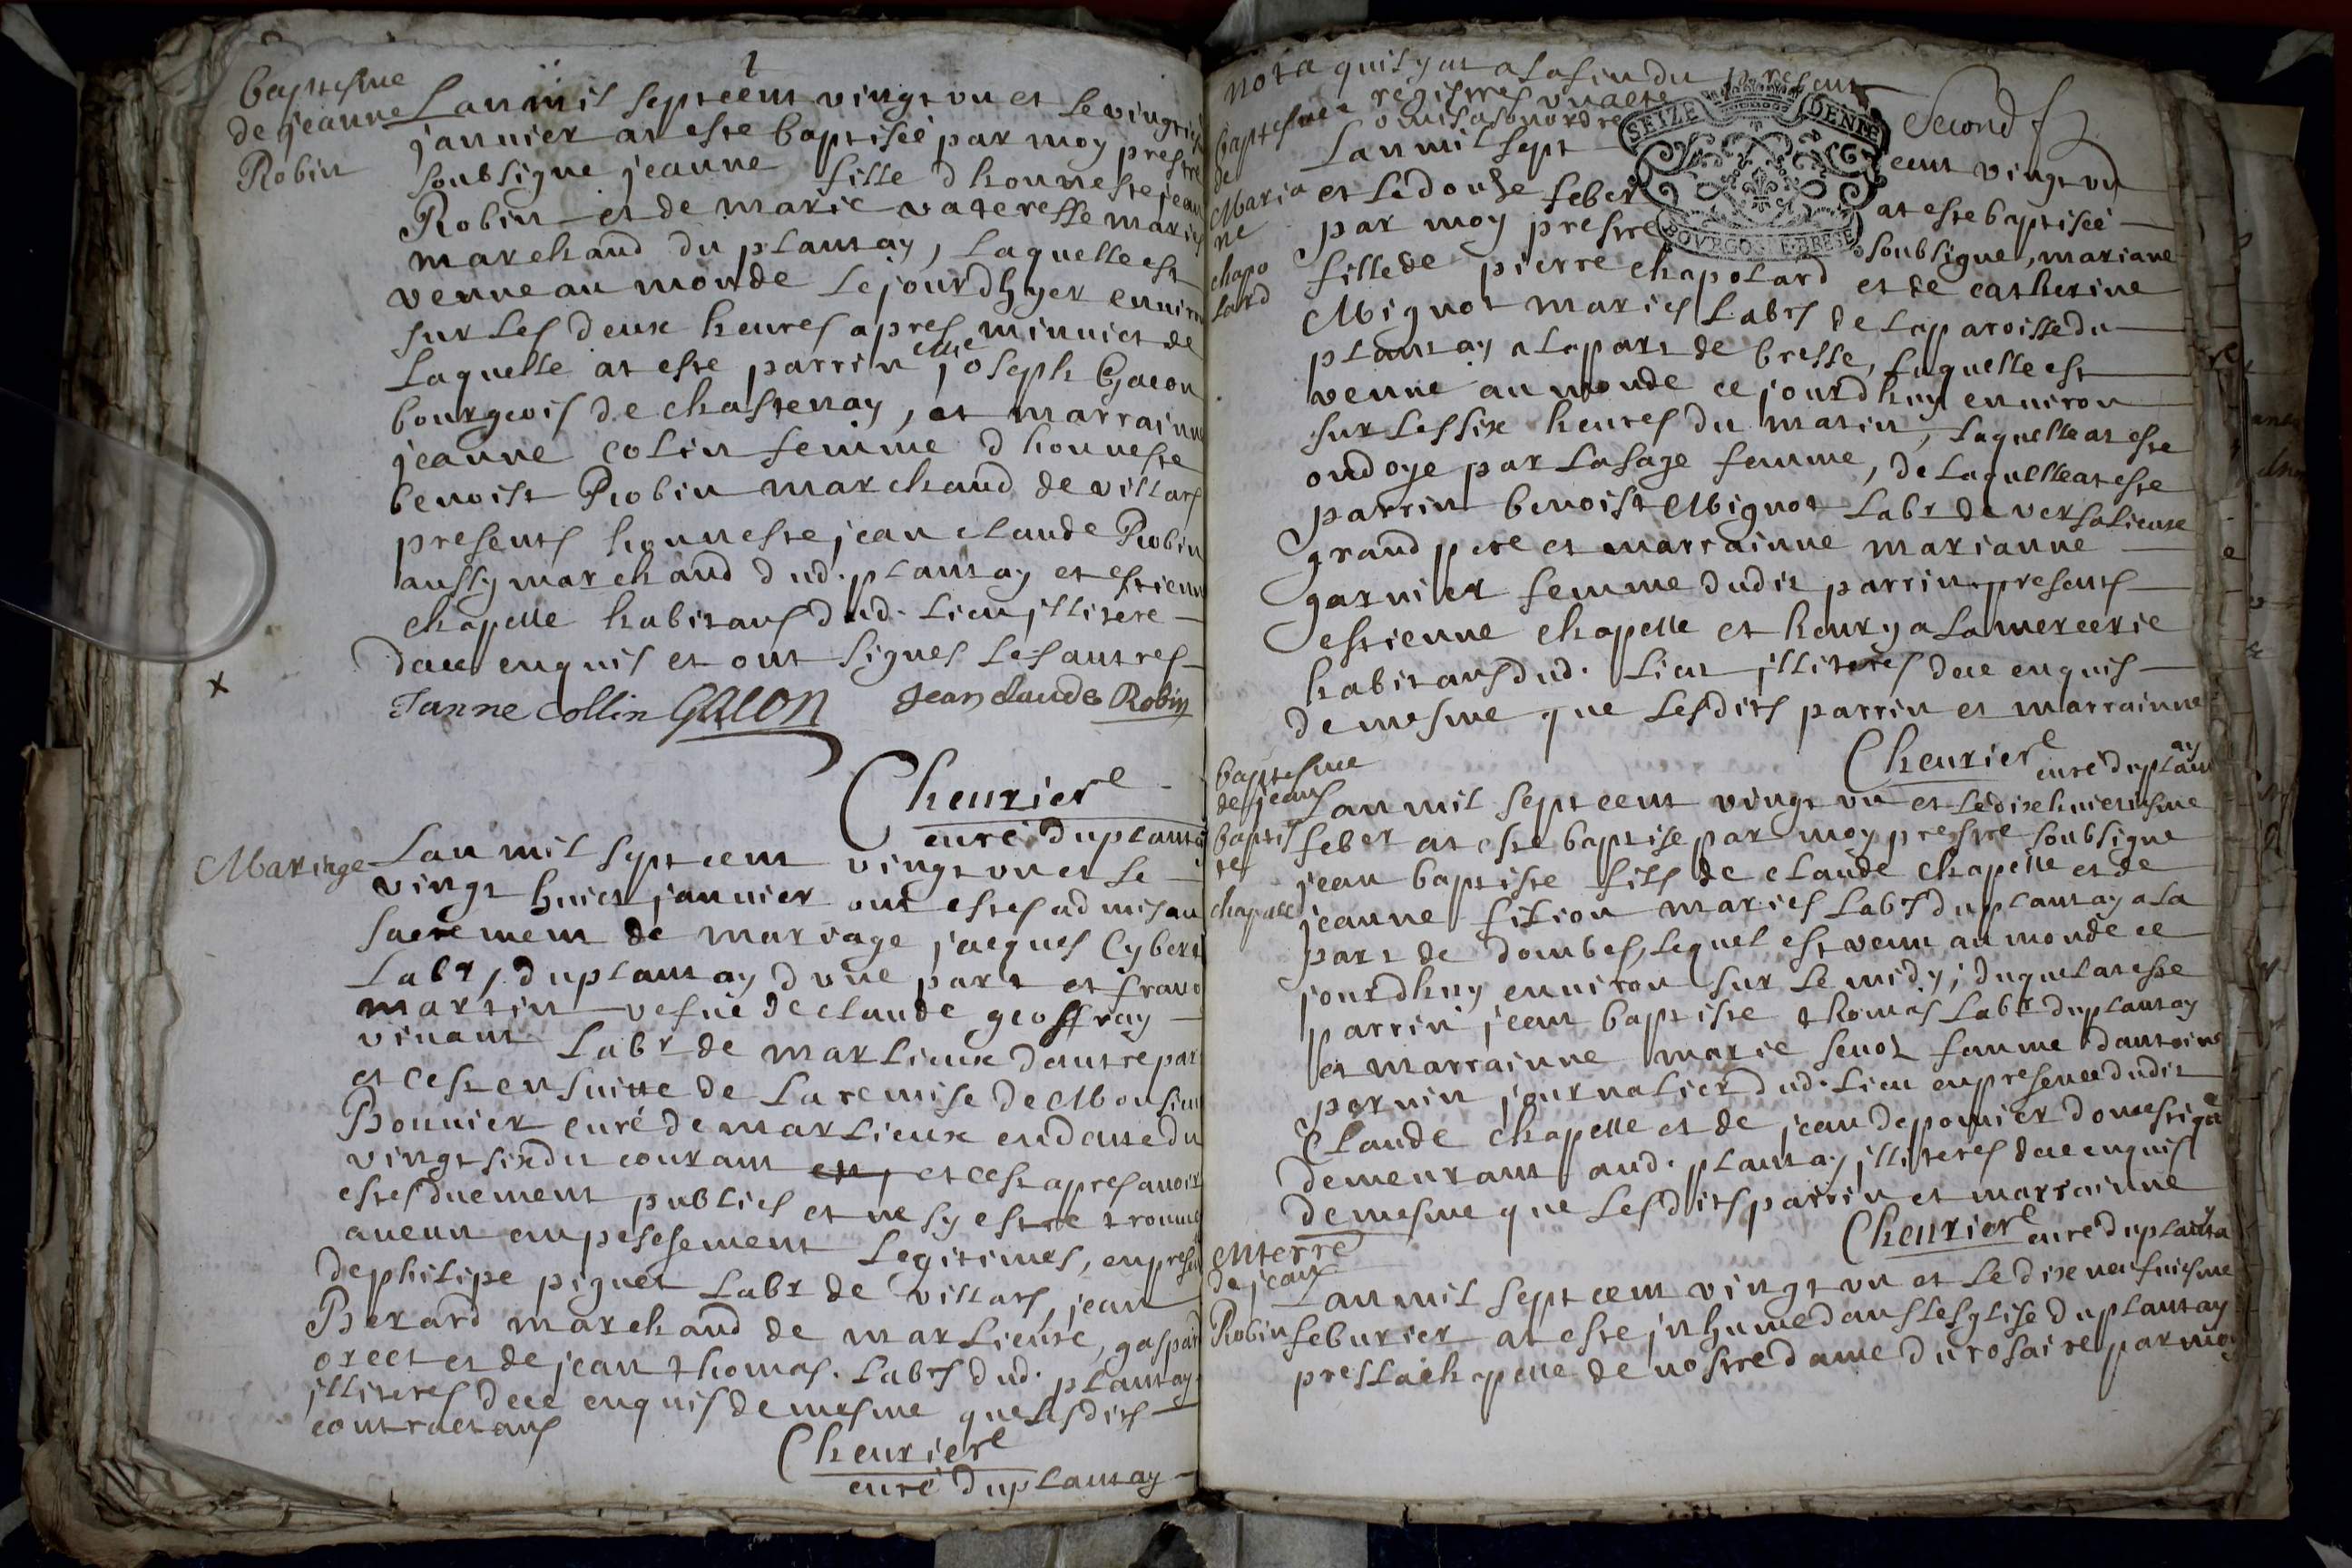 1
baptesme
de jeanne
Robin
Lan mil sept cent vingt vn et le vingt
jannier at este baptisée par moy prestre
soubsigne jeanne fille d honneste jean
Robin et de marie vateresse mariés
marchand du plantay, laquelle est
venue au monde le jourdhyer enuiron
sur les deux heures apres minuict de
laquelle at este parrin Joseph Gacon
bourgeois de chastenay, et marrainne
jeanne colin femme d honneste
benoist Robin marchand de villars
presents honneste jean claude Robin
aussy marchand dud. plantay et estienne
chapelle habitans dud. lieu illitere
dece enquis et ont signes les autres
Janne collin GACON Jean claude Robin
Cheurier
curé du plantay
Mariage
Lan mil sept cent vingt vn et le
vingt huict jannier ont estes admis au
sacrement de mariage jacques Cybert
labr, du plantay dvne part et franc
martin vefue de claude geoffray
viuant labr de marlieux dautre part
et cest ensuitte de la remise de Monsieur
Bonnier curé de marlieux en datte du
vingt six du courant et, et cest apres auoir
estes duement publies et ne sy estre trouué
aucun empeschement legitimes, en presen
de philipe piguet labr de villars, jean
Berard marchand de marlieuse, gaspard
orcet et de jean thomas. labrs dud. plantay
illiteres dece enquis de mesme que lesdits
contractans
Cheurier
curé du plantay
nota quil y at a la fin du present
registres vn acte
omis a son ordre
Second
baptesmee
de
Maria
ne
chapo
lard
Lan mil sept cent vingt vn
et le douse feber at este baptisée
par moy prestre soubsigne, mariane
fille de pierre chapolard et de catherine
Mignot mariés labrs de la paroisse du
plantay a la part de bresse, laquelle est
venue au monde ce jourdhuy enuiron
sur les six heures du matin, laquelle at este
ondoye par la sage femme, de laquelle at este
parrin benoist Mignot labr de versalieuse
grand pere et marrainne marianne
garnier femme dudit parrin presents
estienne chapelle et henry a la mercerie
habitans dud. lieu illiteres dece enquis
de mesme que lesdits parrin et marrainne
Cheurier curé du plantay
baptesme
de jean
baptis
te
chapelle
Lan mil sept cent vingt vn et le dixhuictiesme
feber at este baptise par moy prestre soubsigne
jean baptiste fils de claude chapelle et de
jeanne filion mariés labrs du plantay a la
part de dombes, lequel est venu au monde ce
jourdhuy enuiron sur le midy; duquel at este
parrin jean baptiste thomas labr du plantay
et marrainne marie seuoz famme dantoine
pernin journalier dud. lieu en presence dudit
Claude chapelle et de jean depomier domestique
demeurant aud. plantay illiteres dece enquis
de mesme que lesdits parrin et marrainne
Cheurier curé du plantay
Enterre
de jean
Robin
Lan mil sept cent vingt vn et le dixneufuiesme
feburier at este jnhume dans lesglise du plantay
pres la chapelle de nostre dame du rosaire par moy
SEIZE DENIE
BOVRGOGNE BRESSE